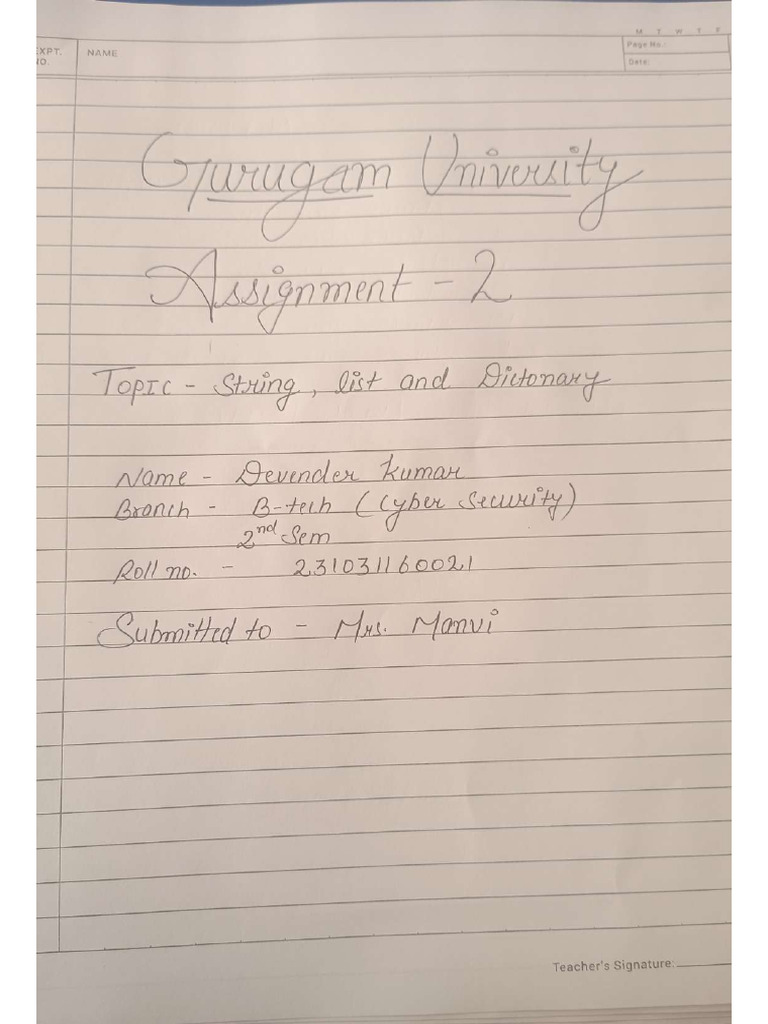 M T W T F
EXPT. NO. NAME Page No.:
Date:
Gurugam University
Assignment - 2
Topic - String, list and Dictonary
Name - Devender Kumar
Branch - B-tech (Cyber Security)
2nd Sem
Roll no. - 231031160021
Submitted to - Mrs. Manvi
Teacher's Signature: